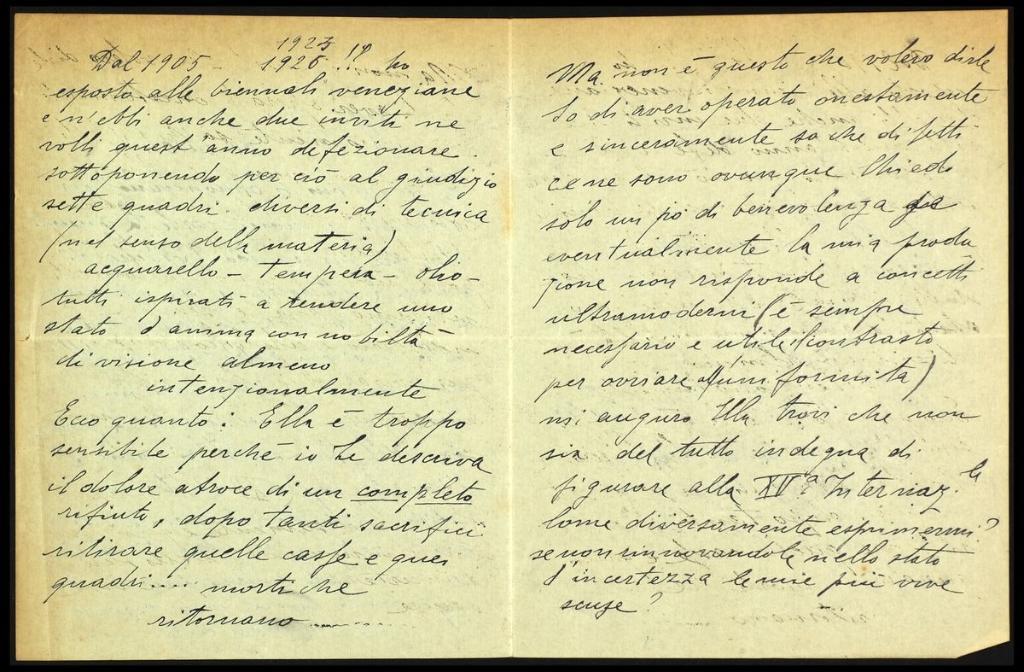 1924
Dal 1905 - 1926 !! ho
esposto alle biennali veneziane
e n'ebbi anche due inviti ne
volli quest'anno defezionare.
sottoponendo per ciò al giudizio
sette quadri diversi di tecnica
(nel senso della materia)
acquarello - tempera - olio -
tutti ispirati a rendere uno
stato d'anima con nobiltà
di visione almeno
intenzionalmente
Ecco quanto: Ella è troppo
sensibile perché io Le descriva
il dolore atroce di un completo
rifiuto, dopo tanti sacrifici
ritirare quelle casse e quei
quadri.... morti che
ritornano ........
Ma non è questo che volevo dirle
So di aver operato onestamente
e sinceramente so che difetti
ce ne sono ovunque Chiedo
solo un pò di benevolenza
eventualmente la mia produ
zione non risponde a concetti
ultramoderni (è sempre
necessario e utile il contrasto
per ovviare all'uniformità)
mi auguro Ella trovi che non
sia del tutto indegna di
figurare alla XVª Internaz.le
Come diversamente esprimermi?
se non rinnovandole nello stato
d'incertezza le mie più vive
scuse?